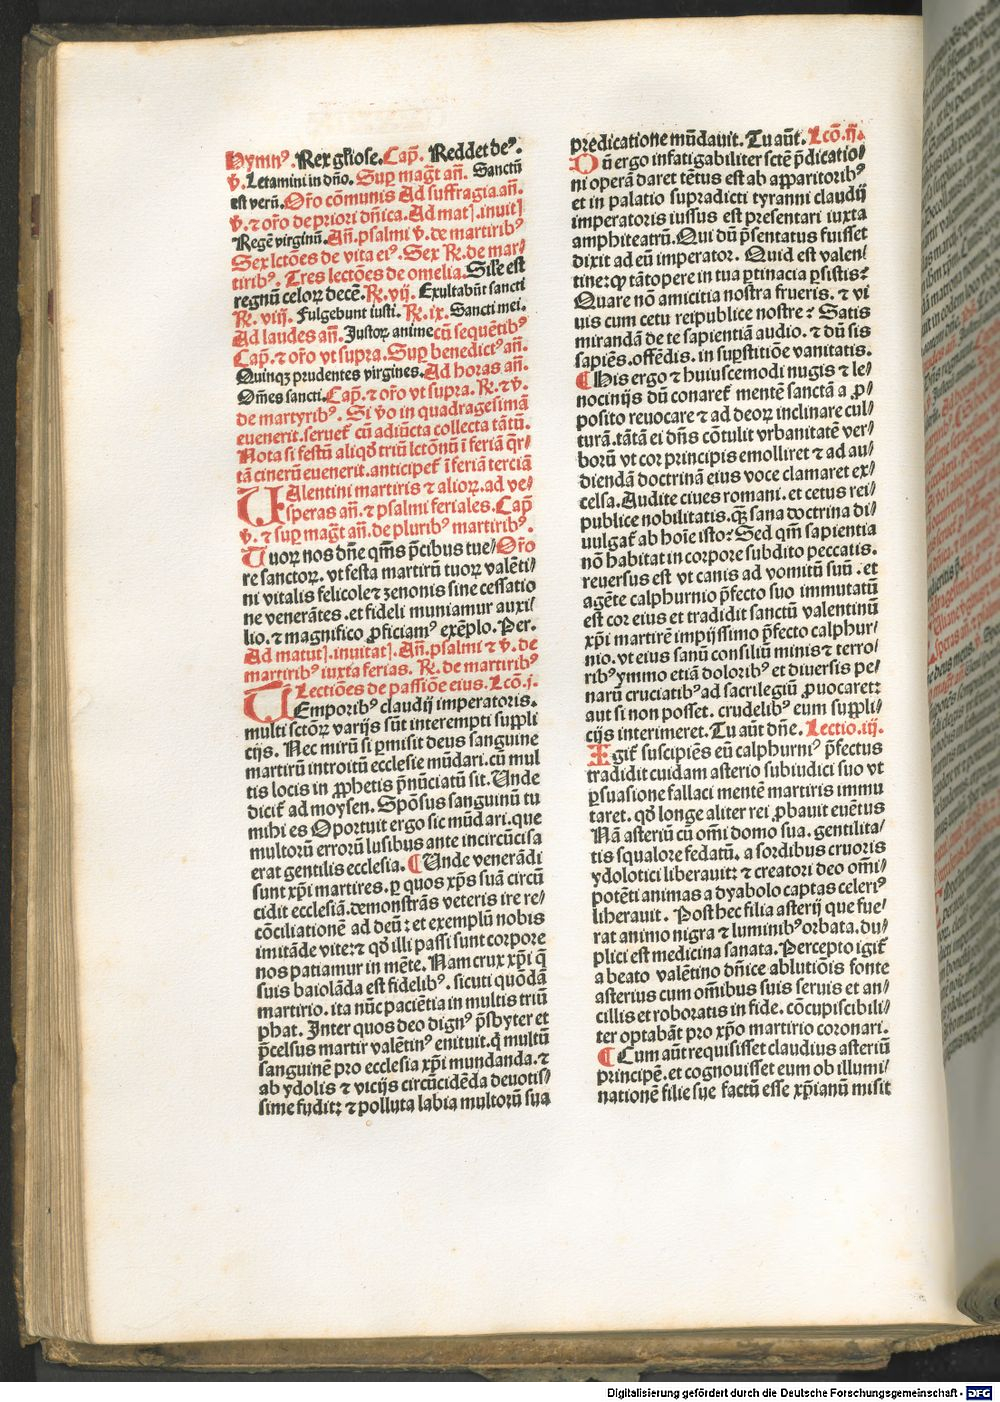 Hymnꝰ. Rex gl̄iose. Cap̄. Reddet deꝰ.
v̄. Letamini in dn̄o. Suꝑ maḡt an̄. Sanctū
est verū. Or̄o cōmunis Ad suffragia.an̄.
v̄. ⁊ or̄o de priori dn̄ica. Ad mat]. inuit]
Regē virginū. An̄. psalmi v̄. de martiribꝰ
Sex lctōes de vita eiꝰ. Sex R̄. de mar/
tiribꝰ. Tres lectōes de omelia. Sil'e est
regnū celoꝝ decē. R̄. vij. Exultabūt sancti
R̄. viij. Fulgebunt iusti. R̄. ix. Sancti mei.
Ad laudes an̄. Justoꝝ anime cū sequētibꝰ
Cap̄. ⁊ or̄o vt supra. Suꝑ benedictꝰ an̄.
Quinqꝫ prudentes virgines. Ad horas an̄.
Om̄es sancti. Cap̄. ⁊ or̄o vt supra. R̄. ⁊ v̄.
de martyribꝰ. Si v̄o in quadragesimā
euenerit. seruet̄ cū adiūcta collecta tātū.
Nota si festū aliqd̄ triū lctōnū ī feriā q̄r/
tā cinerū euenerit. anticipet̄ ī feriā terciā
VAlentini martiris ⁊ alioꝝ. ad ve/
speras an̄. ⁊ psalmi feriales. Cap̄
v̄. ⁊ suꝑ maḡt an̄. de pluribꝰ martiribꝰ.
Tuoꝝ nos dn̄e qm̄s p̄cibus tue/ Or̄o
re sanctoꝝ. vt festa martirū tuoꝝ valēti/
ni vitalis felicole ⁊ zenonis sine cessatio
ne venerātes. et fideli muniamur auxi/
lio. ⁊ magnifico ꝓficiamꝰ exēplo. Per.
Ad matut]. inuitat]. An̄. psalmi ⁊ v̄. de
martiribꝰ iuxta ferias. R̄. de martiribꝰ
Lectiōes de passiōe eius. Lcō. j.
TEmporibꝰ claudij imperatoris.
multi sctōꝝ varijs sūt interempti suppli
cijs. Nec mirū si ꝑmisit deus sanguine
martirū introitū ecclesie mūdari. cū mul
tis locis in ꝓphetis p̄nūciatū sit. Unde
dicit̄ ad moysen. Spōsus sanguinū tu
mihi es Oportuit ergo sic mūdari. que
multorū errorū lusibus ante incircūcisa
erat gentilis ecclesia. ¶ Unde venerādi
sunt xp̄i martires. ꝑ quos xp̄s suā circū
cidit ecclesiā. demonstrās veteris ire re/
cōciliationē ad deū: et exemplū nobis
imitāde vite: ⁊ qd̄ illi passi sunt corpore
nos patiamur in mēte. Nam crux xp̄i q̄
suis baiolāda est fidelibꝰ. sicuti quōdā
martirio. ita nūc paciētia in multis triū
phat. Inter quos deo dignꝰ p̄sbyter et
p̄celsus martir valētinꝰ enituit. q̄ multū
sanguinē pro ecclesia xp̄i mundanda. ⁊
ab ydolis ⁊ vicijs circūcidēda deuotis/
sime fudit: ⁊ polluta labia multorū sua
predicatione mūdauit. Tu aūt. Lcō. ij.
DUm̄ ergo infatigabiliter sctē p̄dicatio/
ni operā daret tētus est ab apparitoribꝰ
et in palatio supradicti tyranni claudij
imperatoris iussus est presentari iuxta
amphiteatrū. Qui dū p̄sentatus fuisset
dixit ad eū imperator. Quid est valen/
tine: qꝫ tātopere in tua ꝑtinacia ꝑsistis?
Quare nō amicitia nostra frueris. ⁊ vi
uis cum cetu reipublice nostre? Satis
mirandā de te sapientiā audio. ⁊ dū sis
sapiēs. offēdis. in suꝑstitiōe vanitatis.
¶ His ergo ⁊ huiuscemodi nugis ⁊ le/
nocinijs dū conaret̄ mentē sanctā a ꝓ/
posito reuocare ⁊ ad deoꝝ inclinare cul/
turā. tātā ei dn̄s cōtulit vrbanitatē ver/
borū vt cor principis emolliret ⁊ ad au/
diendā doctrinā eius voce clamaret ex/
celsa. Audite ciues romani. et cetus rei/
publice nobilitatis. qꝫ sana doctrina di/
uulgat̄ ab hoīe isto? Sed qm̄ sapientia
nō habitat in corpore subdito peccatis.
reuersus est vt canis ad vomitū suū. et
agēte calphurnio p̄fecto suo immutatū
est cor eius et tradidit sanctū valentinū
xp̄i martirē impijssimo p̄fecto calphur/
nio. vt eius sanū consiliū minis ⁊ terro/
ribꝰ ymmo etiā doloribꝰ et diuersis pe/
narū cruciatibꝰ ad sacrilegiū ꝓuocaret:
aut si non posset. crudelibꝰ eum suppli/
cijs interimeret. Tu aūt dn̄e. Lectio.iij.
Igit̄ suscipiēs eū calphurniꝰ p̄fectus
tradidit cuidam asterio subiudici suo vt
ꝑsuasione fallaci mentē martiris immu
taret. qd̄ longe aliter rei ꝓbauit euētus
Nā asteriū cū om̄i domo sua. gentilita/
tis squalore fedatū. a sordibus cruoris
ydolotici liberauit: ⁊ creatori deo om̄i/
potēti animas a dyabolo captas celeriꝰ
liberauit. Post hec filia asterij que fue/
rat animo nigra ⁊ luminibꝰ orbata. du/
plici est medicina sanata. Percepto igit̄
a beato valētino dn̄ice ablutiōis fonte
asterius cum om̄ibus suis seruis et an/
cillis et roboratis in fide. cōcupiscibili/
ter optabāt pro xp̄o martirio coronari.
¶ Cum aūt requisisset claudius asteriū
principē. et cognouisset eum ob illumi/
nationē filie sue factū esse xp̄ianū misit
Digitalisierung gefördert durch die Deutsche Forschungsgemeinschaft - DFG